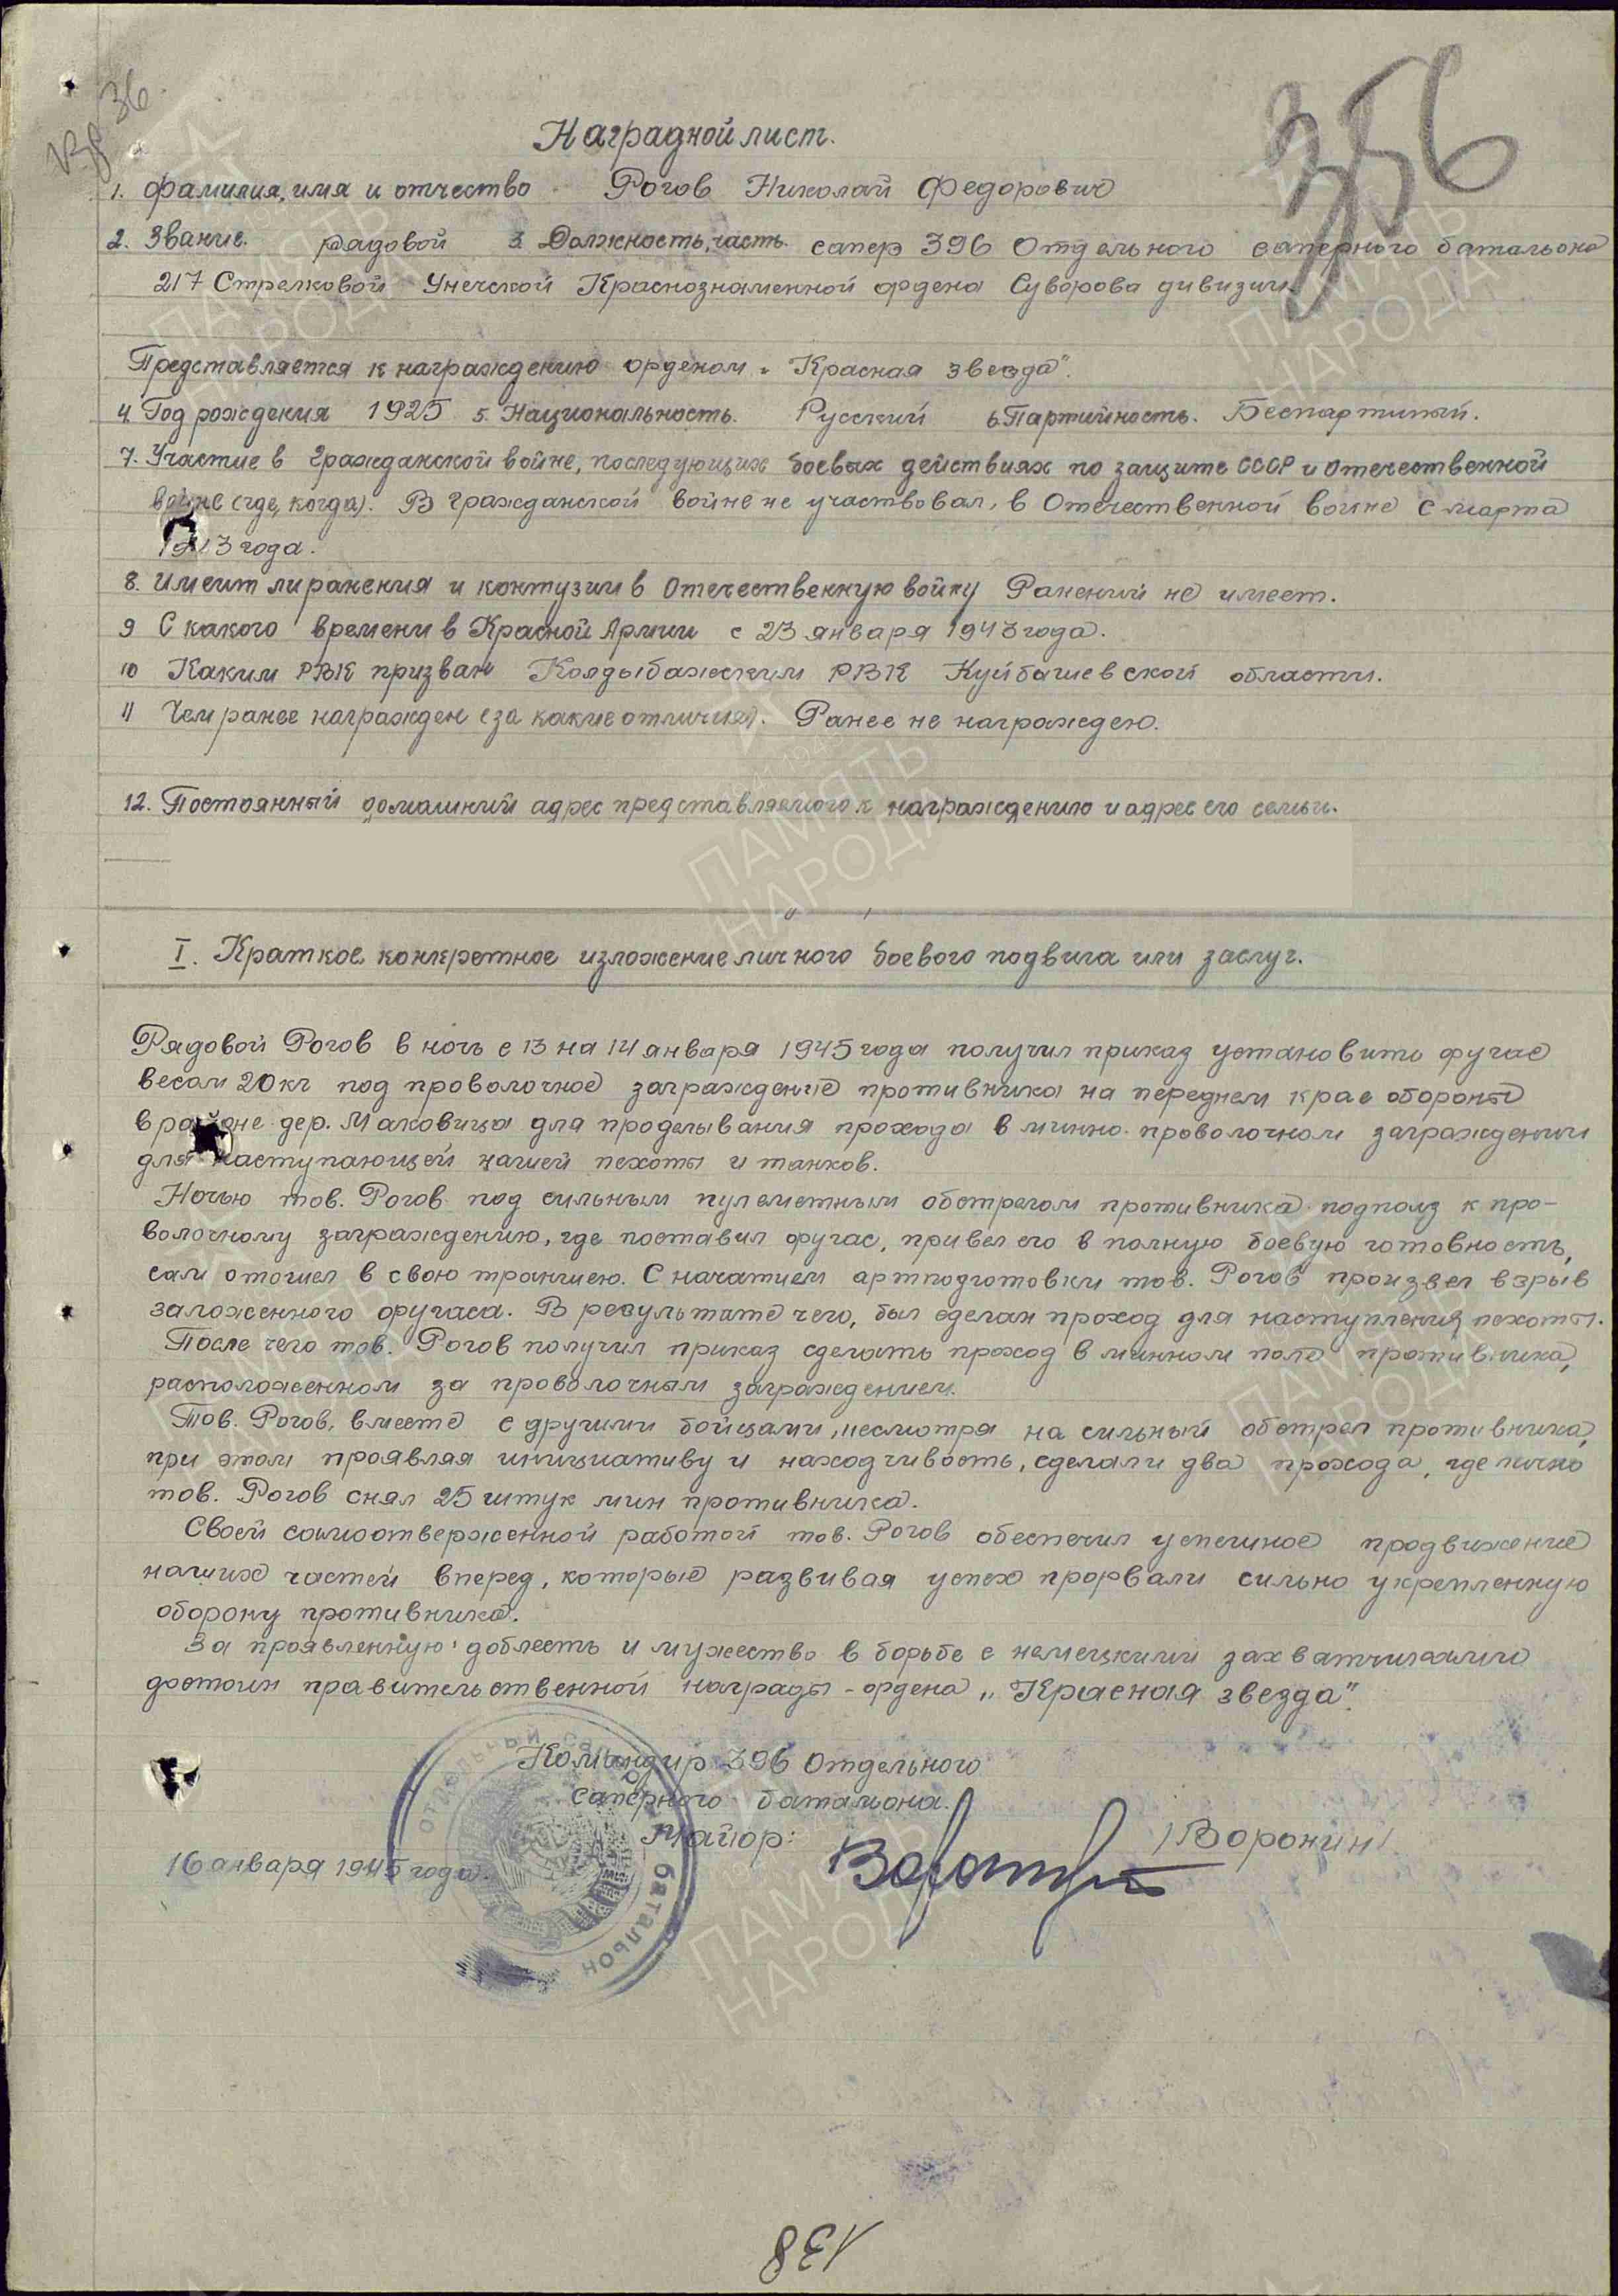 Вр 36
356
Наградной лист.
1. Фамилия, имя и отчество Рогов Николай Федорович
2. Звание. рядовой 3. Должность, часть. сапер 396 Отдельного саперного батальона
217 Стрелковой Унечской Краснознаменной ордена Суворова дивизии.
Представляется к награждению орденом „Красная звезда".
4. Год рождения 1925 5. Национальность. Русский 6. Партийность. Беспартийный.
7. Участие в гражданской войне, последующих боевых действиях по защите СССР и отечественной
войне (где, когда). В гражданской войне не участвовал, в Отечественной войне с марта
1943 года.
8. Имеит ли ранения и контузии в Отечественную войну Ранений не имеет.
9 С какого времени в Красной Армии с 23 января 1943 года.
10 Каким РВК призван Колдыбажским РВК Куйбышевской области.
11 Чем ранее награжден (за какие отличия). Ранее не награжден.
12. Постоянный домашний адрес представляемого к награждению и адрес его семьи.
I. Краткое конкретное изложение личного боевого подвига или заслуг.
Рядовой Рогов в ночь с 13 на 14 января 1945 года получил приказ установить фугас
весом 20 кг под проволочное заграждение противника на переднем крае обороны
в районе дер. Маковица для проделывания прохода в минно-проволочном заграждении
для наступающей нашей пехоты и танков.
Ночью тов. Рогов под сильным пулеметным обстрелом противника подполз к про-
волочному заграждению, где поставил фугас, привел его в полную боевую готовность,
сам отошел в свою траншею. С начатием артподготовки тов. Рогов произвел взрыв
заложенного фугаса. В результате чего, был сделан проход для наступления пехоты.
После чего тов. Рогов получил приказ сделать проход в минном поле противника,
расположенном за проволочным заграждением.
Тов. Рогов, вместе с другими бойцами, несмотря на сильный обстрел противника,
при этом проявляя инициативу и находчивость, сделали два прохода, где лично
тов. Рогов снял 25 штук мин противника.
Своей самоотверженной работой тов. Рогов обеспечил успешное продвижение
наших частей вперед, которые развивая успех прорвали сильно укрепленную
оборону противника.
За проявленную доблесть и мужество в борьбе с немецкими захватчиками
достоин правительственной награды - ордена „Красная звезда".
Командир 396 Отдельного
саперного батальона.
Майор: /Воронин/
16 января 1945 года.
отдельный саперный батальон
138
ПАМЯТЬ НАРОДА